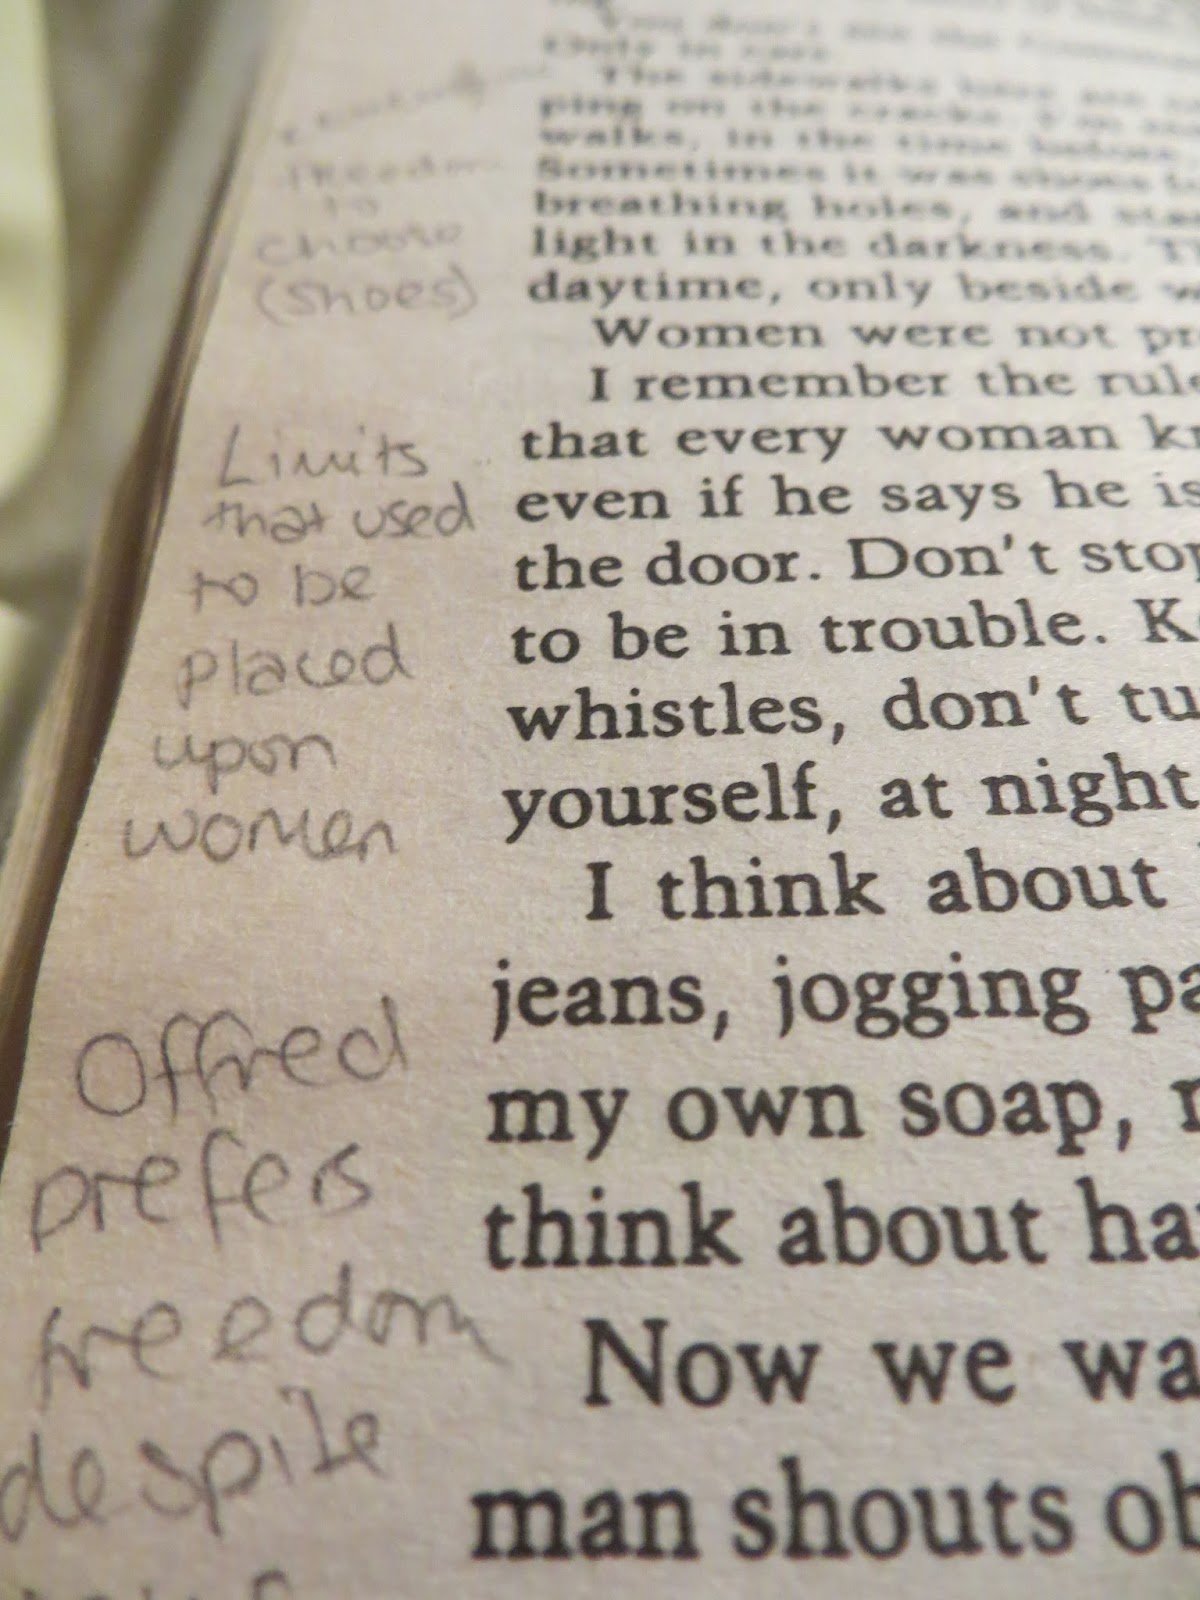 Only in cars.
The sidewalks here are
ping on the cracks. I'm
walks, in the time before,
Sometimes it was shoes
breathing holes, and
light in the darkness.
daytime, only beside
Women were not
I remember the
that every woman
even if he says he is
the door. Don't
to be in trouble.
whistles, don't
yourself, at night
I think about
jeans, jogging
my own soap,
think about
Now we
man shouts
freedom
to
choose
(shoes)
Limits
that used
to be
placed
upon
women
Offred
prefers
freedom
despite